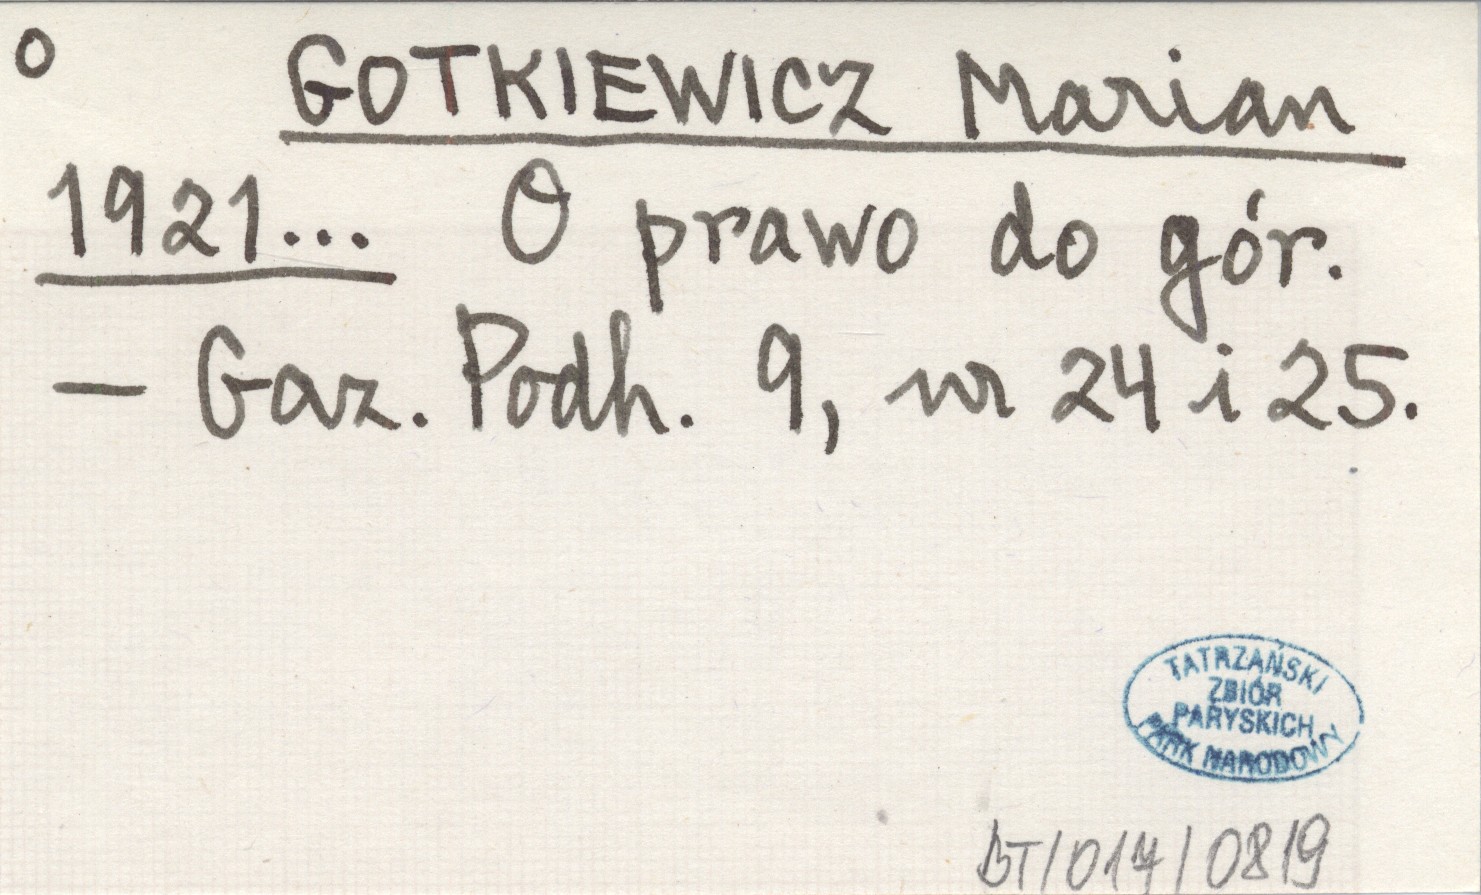 o GOTKIEWICZ Marian
1921... O prawo do gór.
— Gaz. Podh. 9, nr 24 i 25.
TATRZAŃSKI
ZBIÓR
PARYSKICH
PARK NARODOWY
BT/017/0819